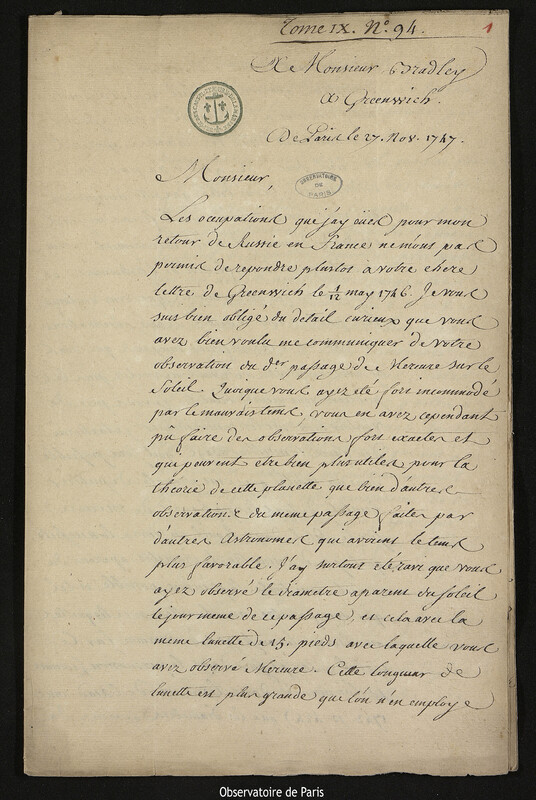 Tome IX. N.º 94.
1
A Monsieur Bradley
A Greenwich.
De Paris le 27. Nov. 1747.
OBSERVATOIRE
DE
PARIS
Monsieur,
Les occupations que j'ay eües pour mon
retour de Russie en France ne m'ons pas
permis de repondre plustos a votre chere
lettre de Greenwich le 1/12 may 1746. Je vous
suis bien obligé du detail curieux que vous
avez bien voulu me communiquer de votre
observation du d.er passage de Mercure sur le
Soleil. Quoique vous ayez eté fort incommodé
par le mauvais tems, vous en avez cependant
pû faire des observations fort exactes et
qui peuvent etre bien plus utiles pour la
theorie de cette planette que bien d'autres
observations du meme passage faites par
d'autres Astronomes que avoient le tems
plus favorable. J'ay surtout eté ravi que vous
ayez observé le diametre aparent du Soleil
le jour meme de ce passage, et cela avec la
meme lunette de 15. pieds avec laquelle vous
avez observé Mercure. Cette longueur de
lunette est plus grande que l'on n'en employe
Observatoire de Paris